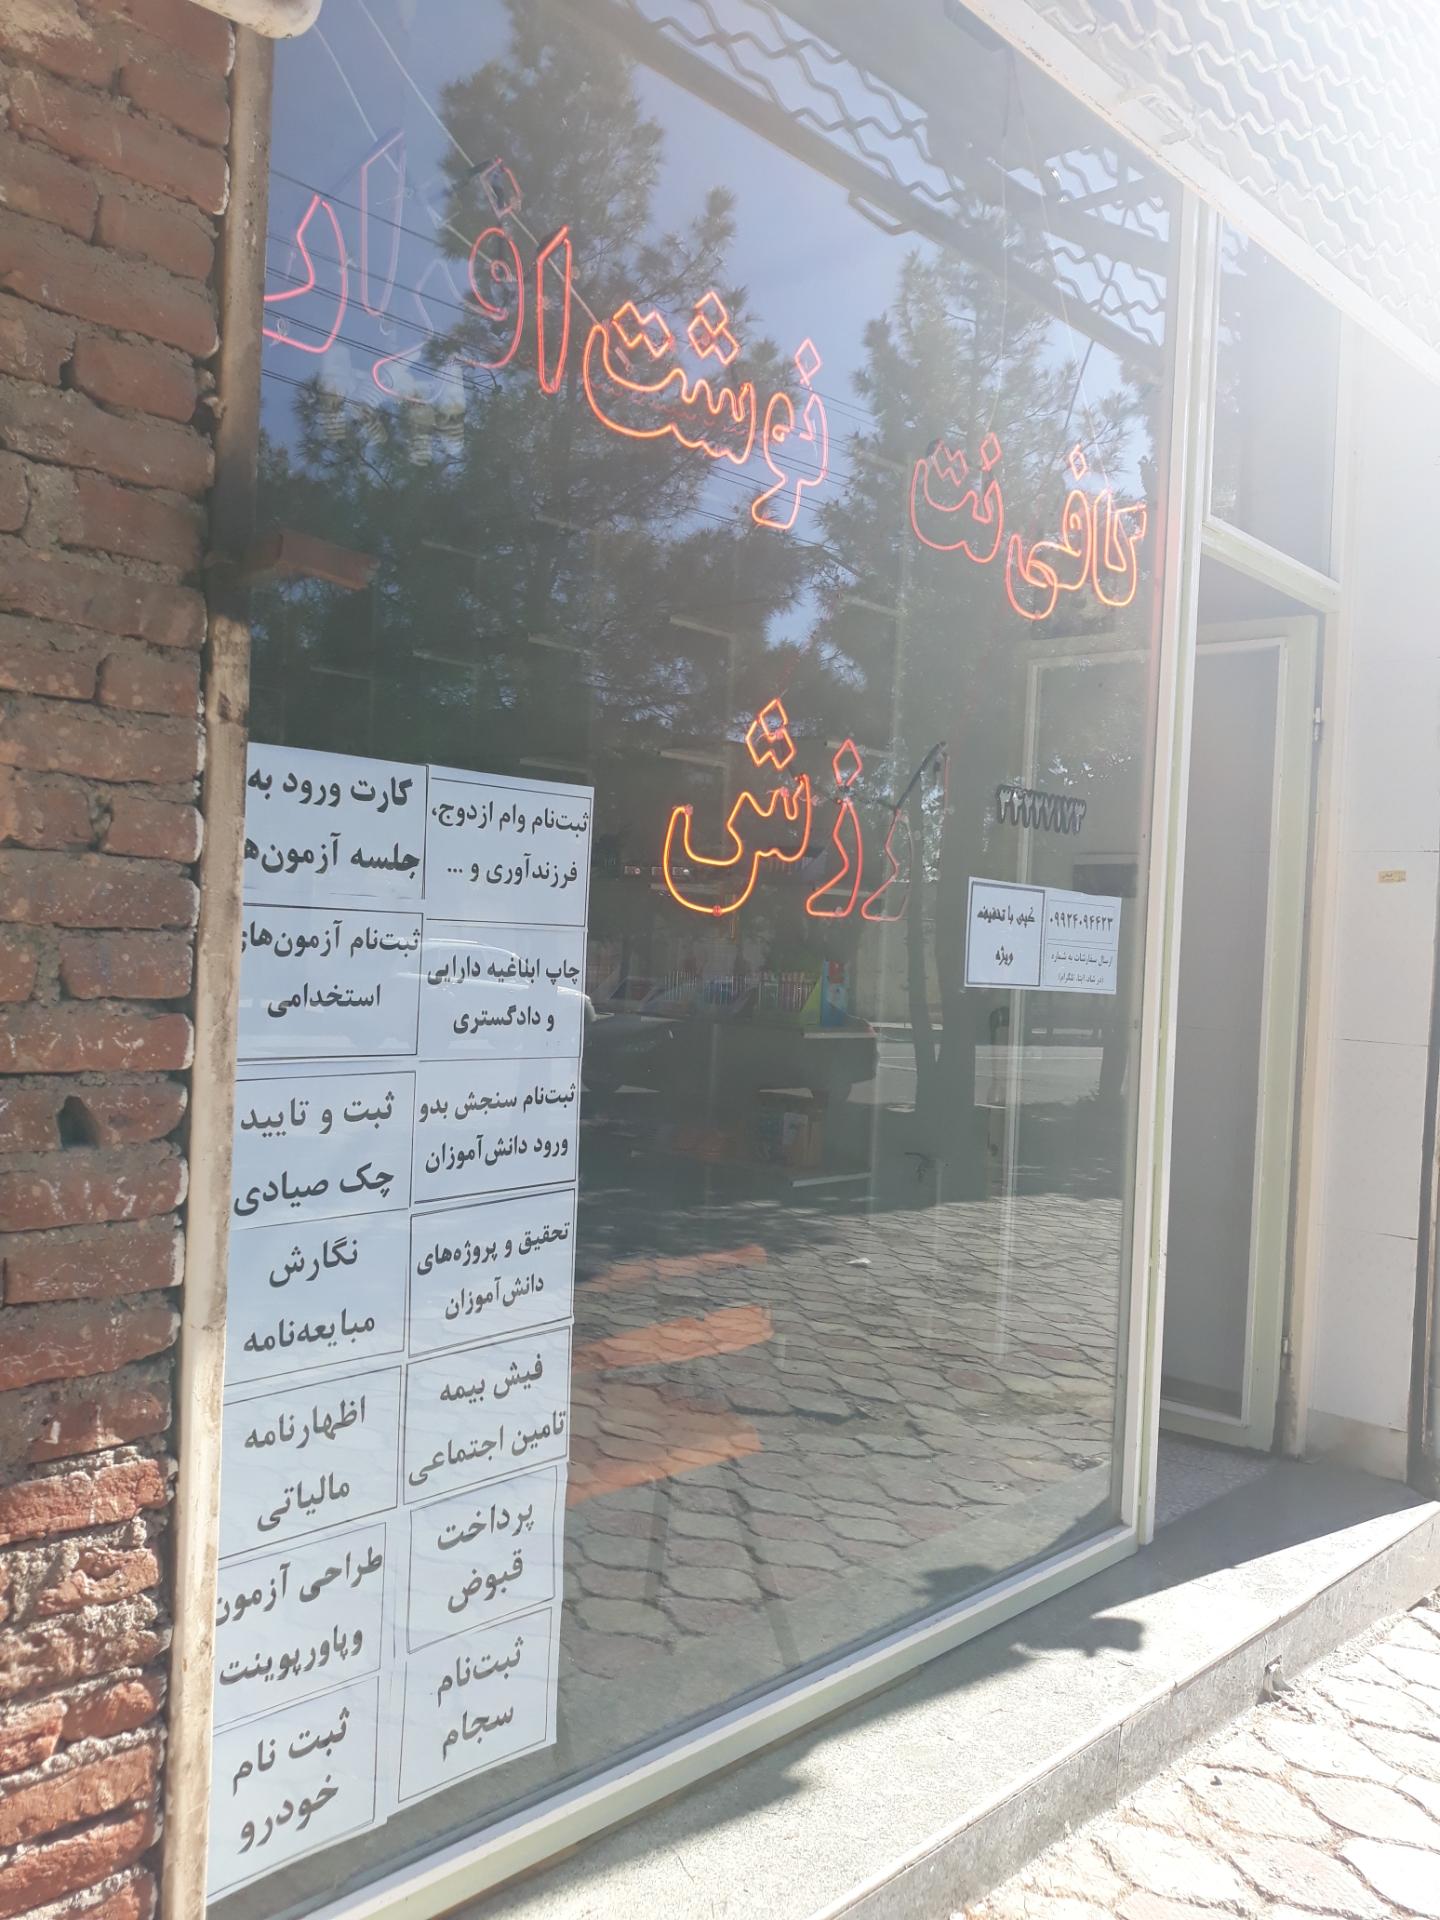 کافی نت
نوشت افزار
ارزش
۳۲۲۲۷۱۷۳
کپی با تخفیف
ویژه
۰۹۹۲۴۰۹۴۴۲۳
ارسال سفارشات به شماره
(در شاد، ایتا، تلگرام)
ثبت‌نام وام ازدوج،
فرزندآوری و ...
کارت ورود به
جلسه آزمون‌ها
چاپ ابلاغیه دارایی
و دادگستری
ثبت‌نام آزمون‌های
استخدامی
ثبت‌نام سنجش بدو
ورود دانش‌آموزان
ثبت و تایید
چک صیادی
تحقیق و پروژه‌های
دانش‌آموزان
نگارش
مبایعه‌نامه
فیش بیمه
تامین اجتماعی
اظهارنامه
مالیاتی
پرداخت
قبوض
طراحی آزمون
وپاورپوینت
ثبت‌نام
سجام
ثبت نام
خودرو